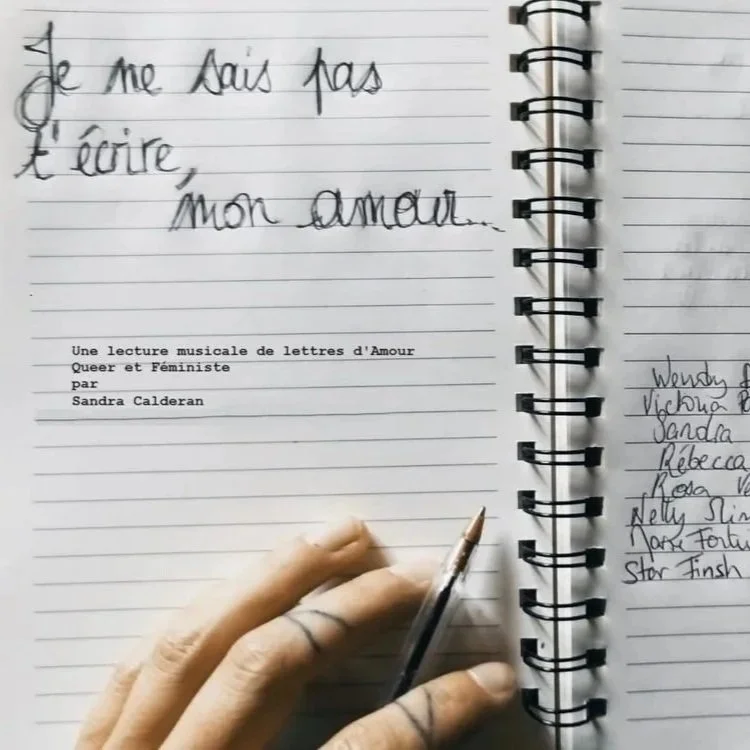 Je ne sais pas
t'écrire,
mon amour...
Une lecture musicale de lettres d'Amour
Queer et Féministe
par
Sandra Calderan
Wendy
Victoria
Sandra
Rébecca
Rosa
Nelly
Star Finsh